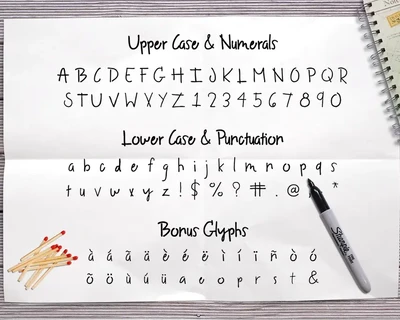 Upper Case & Numerals
A B C D E F G H I J K L M N O P Q R
S T U V W X Y Z 1 2 3 4 5 6 7 8 9 0
Lower Case & Punctuation
a b c d e f g h i j k l m n o p q s
t u v w x y z ! $ % ? # . @ *
Bonus Glyphs
à á ã ä è é ë ì í ï ñ ò ó
õ ö ù ú ü a e o p r s t &
Sharpie